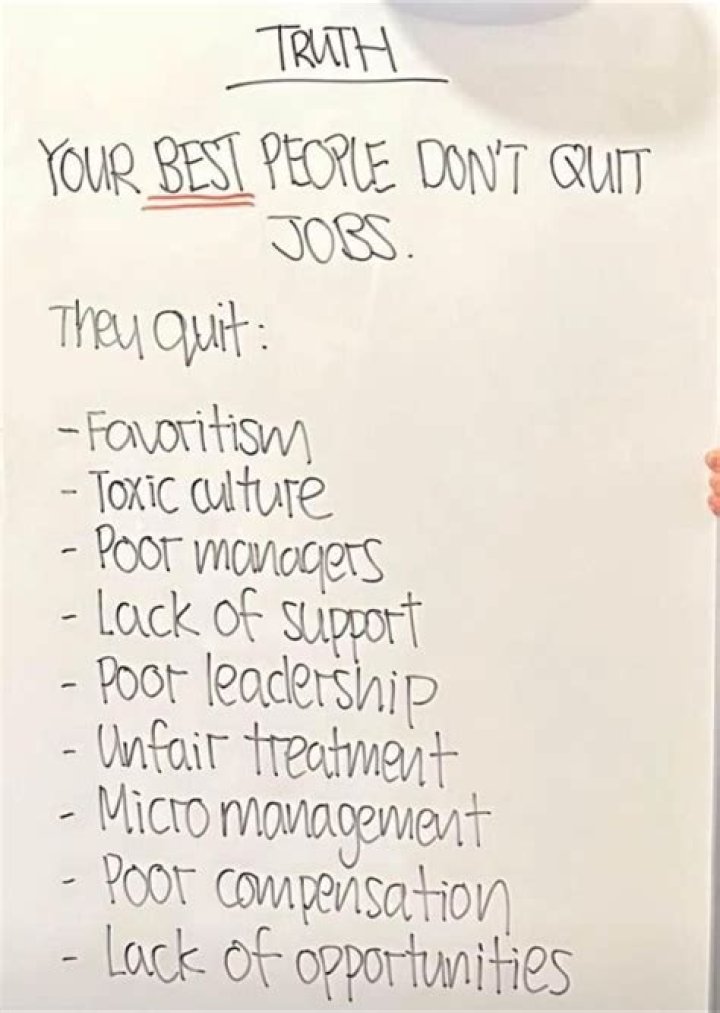 TRUTH
YOUR BEST PEOPLE DON'T QUIT
JOBS.
They quit:
- Favoritism
- Toxic culture
- Poor managers
- Lack of support
- Poor leadership
- Unfair treatment
- Micro management
- Poor compensation
- Lack of opportunities